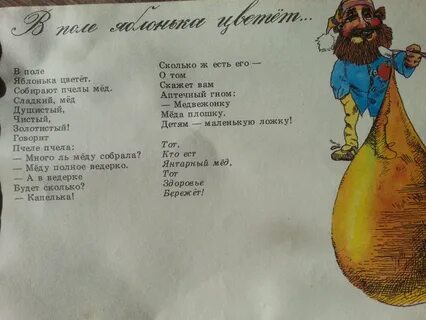 В поле яблонька цветёт...
В поле
Яблонька цветёт.
Собирают пчелы мёд.
Сладкий, мёд
Душистый,
Чистый,
Золотистый!
Говорит
Пчеле пчела:
— Много ль мёду собрала?
— Мёду полное ведерко.
— А в ведерке
Будет сколько?
— Капелька!
Сколько ж есть его —
О том
Скажет вам
Аптечный гном:
— Медвежонку
Мёда плошку.
Детям — маленькую ложку!
Тот,
Кто ест
Янтарный мёд,
Тот
Здоровье
Бережёт!